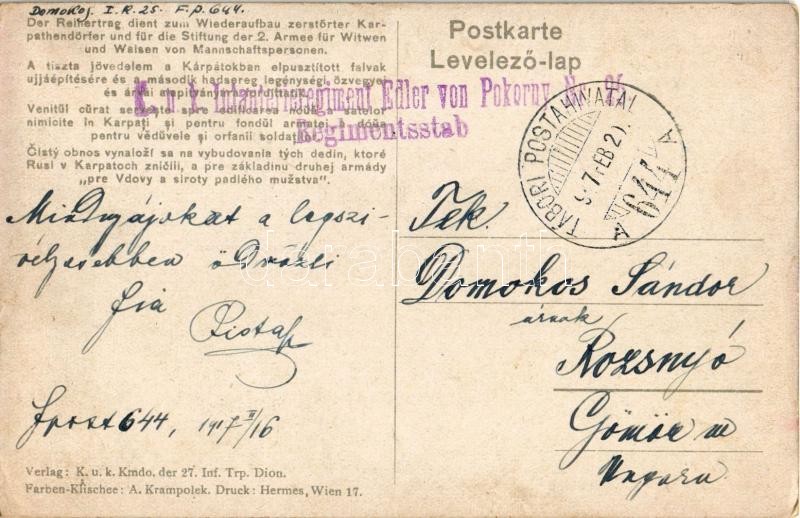 Domokos. I. R. 25. F. p. 644.
Der Reinertrag dient zum Wiederaufbau zerstörter Kar-
pathendörfer und für die Stiftung der 2. Armee für Witwen
und Waisen von Mannschaftspersonen.
A tiszta jövedelem a Kárpátokban elpusztított falvak
ujjáépítésére és a második hadsereg legénységi özvegye
és árvái alapítványára fordíttatik.
Venitūl cūrat serveşte spre edificarea nouă a satelor
nimicite în Karpaţi şi pentru fondūl armatei a dóua
pentru vĕdŭvele şi orfanii soldaţilor.
Čistý obnos vynaloží sa na vybudovania tých dedin, ktoré
Rusi v Karpatoch zničili, a pre základinu druhej armády
„pre Vdovy a siroty padlého mužstva".
K. u. k. Infanterieregiment Edler von Pokorny Nr. 25
Regimentsstab
Postkarte
Levelező-lap
TÁBORI POSTAHIVATAL
644
A
Mindnyájokat a legszi-
vélyesebben üdvözli
fia
Pista
Fpost 644, 1917 II/16
Tek.
Domokos Sándor
úrnak
Rozsnyó
Gömör m
Ungarn
Verlag: K. u. k. Kmdo. der 27. Inf. Trp. Dion.
Farben-Klischee: A. Krampolek. Druck: Hermes, Wien 17.
darabanth